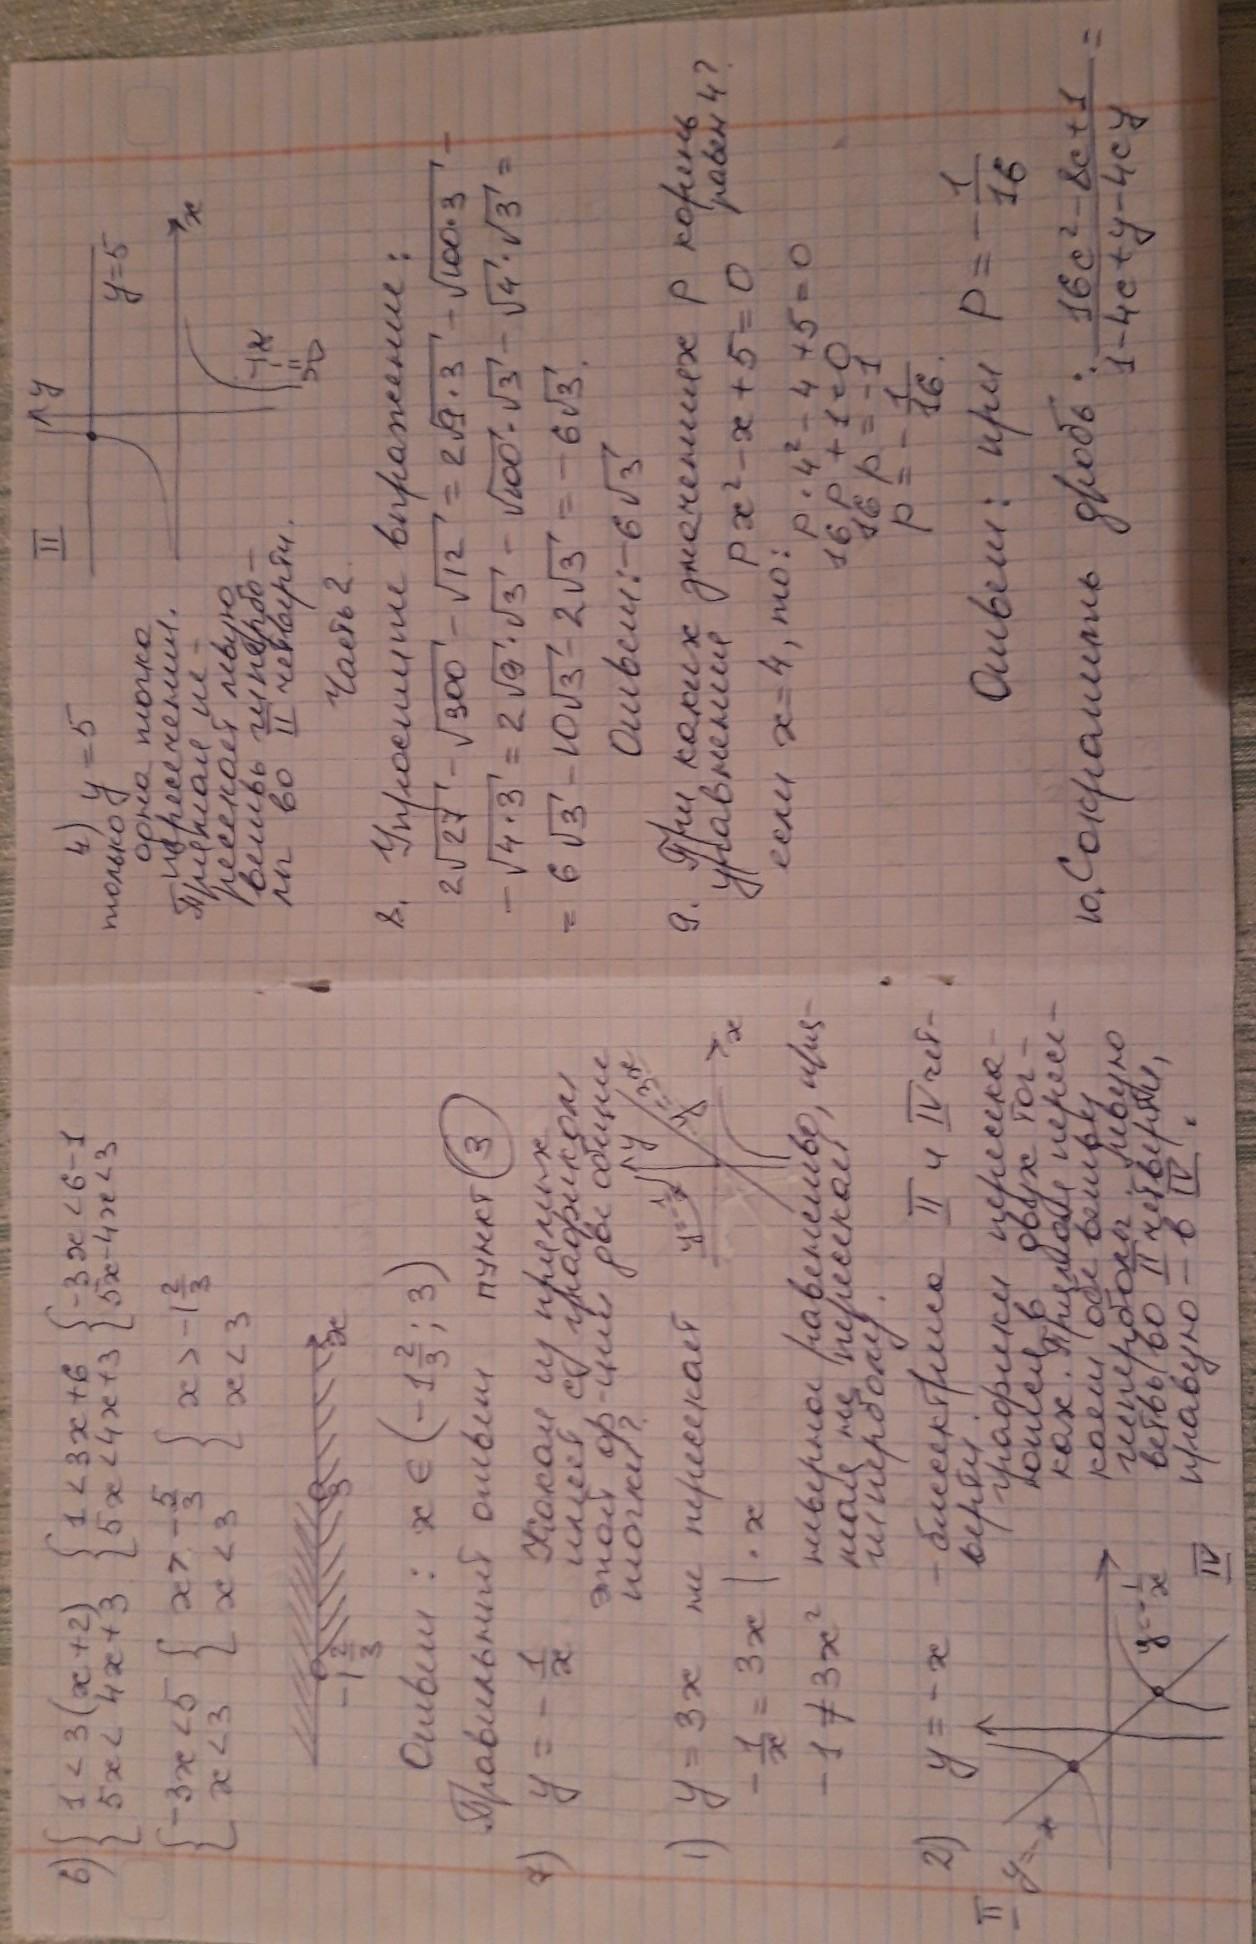 6) { 1 < 3(x+2) { 1 < 3x+6 { -3x < 6-1
{ 5x < 4x+3 { 5x < 4x+3 { 5x-4x < 3
{ -3x < 5 { x > -5/3 { x > -1 2/3
{ x < 3 { x < 3 { x < 3
-1 2/3 3 x
Ответ: x ∈ (-1 2/3; 3)
Правильный ответ пункт 3
7) y = -1/x Какая из прямых
имеет с графиком
этой ф-ции две общие
точки?
1) y = 3x не пересекает
-1/x = 3x | · x
-1 ≠ 3x² неверное равенство, пря-
мая не пересекает
гиперболу.
y = -1/x y y = 3x x
2) y = -x - биссектриса II и IV чет-
верти.
графики пересека-
ются в двух точ-
ках. Прямая пересе-
кает обе ветви
гиперболы: левую
ветвь во II четверти,
правую - в IV.
II y = -x y = -1/x IV
4) y = 5
только одна точка
пересечения.
Прямая пе-
ресекает левую
ветвь гипербо-
лы во II четверти.
II y y=5 x y = -1/x
Часть 2.
8. Упростите выражение:
2√27 - √300 - √12 = 2√9·3 - √100·3 -
- √4·3 = 2√9·√3 - √100·√3 - √4·√3 =
= 6√3 - 10√3 - 2√3 = -6√3.
Ответ: -6√3
9. При каких значениях p корень
уравнения px² - x + 5 = 0 равен 4?
если x = 4, то: p·4² - 4 + 5 = 0
16p + 1 = 0
16p = -1
p = -1/16.
Ответ: при p = -1/16
10. Сократить дробь: 16c² - 8c + 1 / 1 - 4c + y - 4cy =